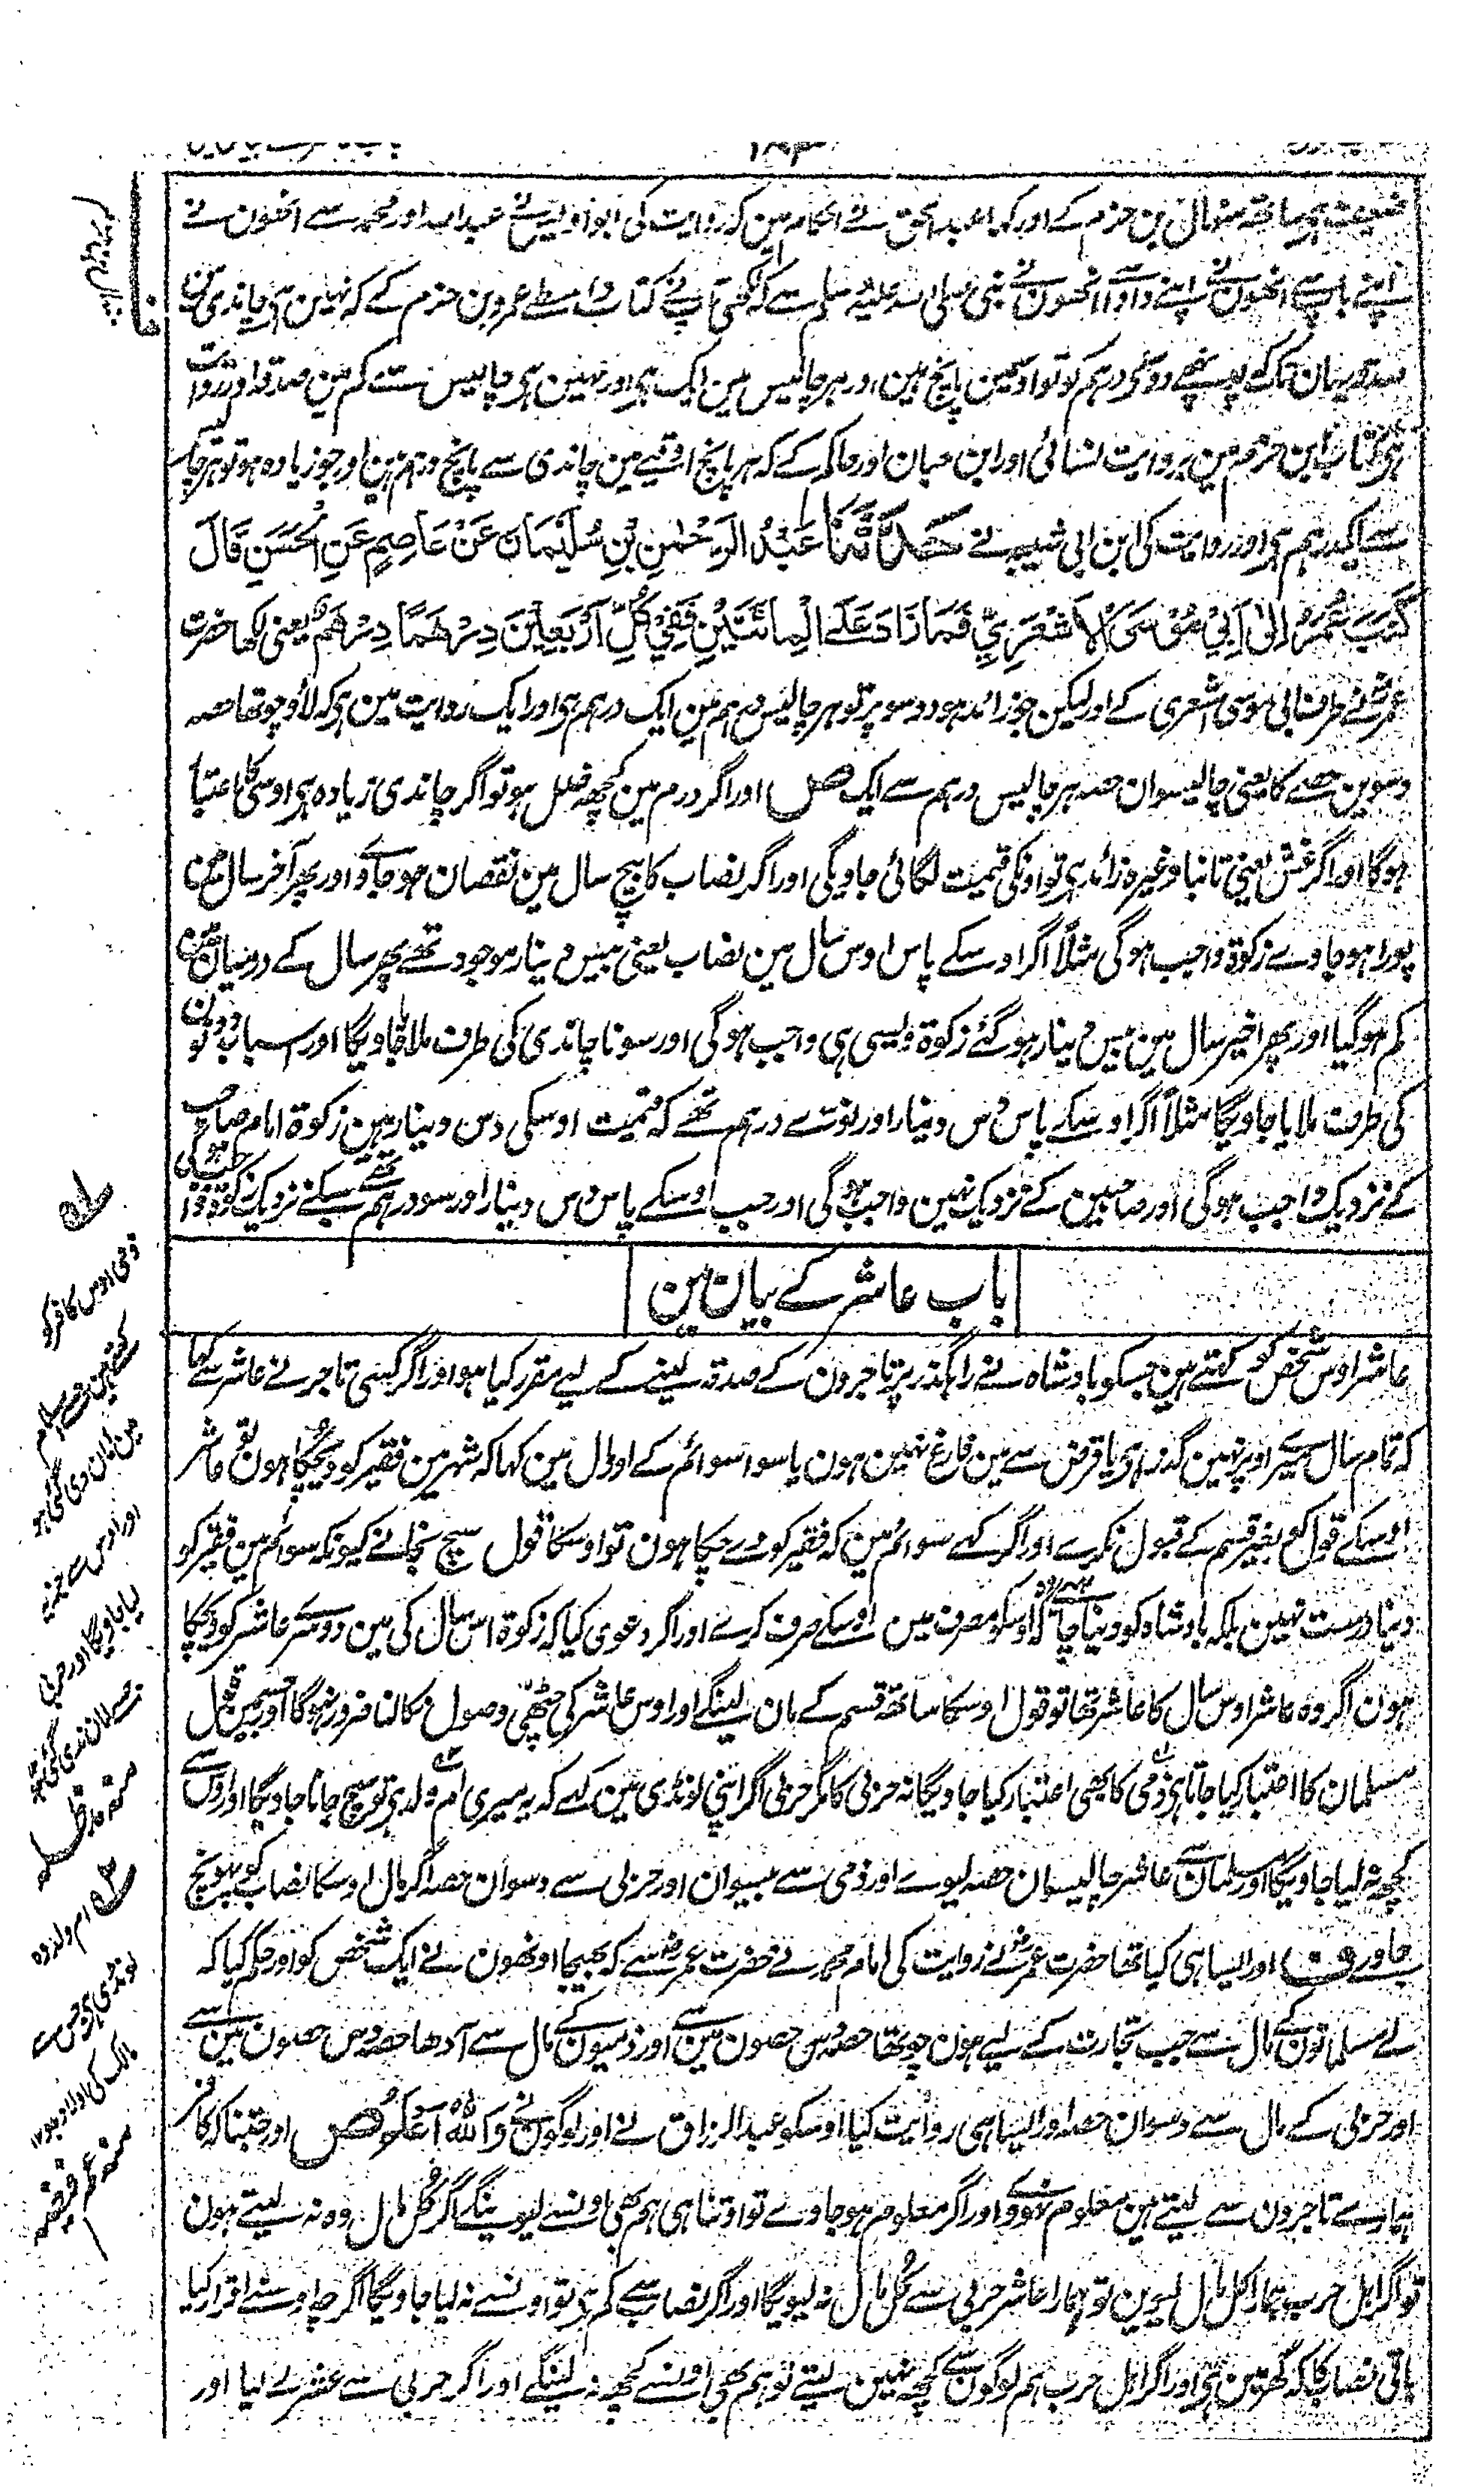 ضعیف ہی ساتھ منہال بن جزم کے اور کہا عبد الحق نے احکام مین کہ روایت کی ابو اویس نے عبداللہ اور محمد سے انھون نے
اپنے باپ سے انھون نے اپنے دادا سے انھون نے نبی صلی اللہ علیہ وسلم سے کہ لکھی آپ نے کتاب واسطے عمرو بن حزم کے کہ نہین ہی چاندی مین
صدقہ یہان تک کہ پہنچے دو سی درہم کو تو اوسمین پانچ ہین اور ہر چالیس مین ایک ہی اور نہین ہی چالیس سے کم مین صدقہ اور روایت
ہی کتاب ابن حزم مین بروایت نسائی اور ابن حبان اور حاکم کے کہ ہر پانچ اوقیے مین چاندی سے پانچ درہم ہین اور جو زیادہ ہو تو ہر چالیس
سے ایک درہم ہی اور روایت کی ابن ابی شیبہ نے حَدَّثَنَا عَبْدُ الرَّحْمٰنِ بْنِ سُلَيْمَان عَنْ عَاصِمٍ عَنِ الْحَسَنِ قَالَ
كَتَبَ عُمَرُ اِلٰى اَبِيْ مُوْسَى الْاَشْعَرِيِّ فَمَا زَادَ عَلَى الْمِائَتَيْنِ فَفِيْ كُلِّ اَرْبَعِيْنَ دِرْهَمًا دِرْهَمٌ یعنی لکھا حضرت
عمرؓ نے طرف ابی موسی اشعری کے اور لیکن جو زائد ہو دو سو پر تو ہر چالیس درہم مین ایک درہم ہی اور ایک روایت مین ہی کہ لاؤ چوتھا حصہ
دسوین حصے کا یعنی چالیسوان حصہ ہر چالیس درہم سے ایک ص اور اگر درم مین کچھ خلل ہو تو اگر چاندی زیادہ ہی اوسی کا اعتبار
ہوگا اور اگر غش یعنی تانبا وغیرہ زائد ہی تو اونکی قیمت لگائی جاویگی اور اگر نصاب کا بیچ سال مین نقصان ہو جاوے اور پھر آخر سال مین
پورا ہو جاوے زکوۃ واجب ہوگی مثلاً اگر اوسکے پاس اوس سال مین نصاب یعنی بیس دینار موجود تھے پھر سال کے درمیان مین
کم ہو گیا اور پھر اخیر سال مین بیس دینار ہو گئے زکوۃ ویسی ہی واجب ہوگی اور سونا چاندی کی طرف ملایا جاویگا اور اسباب دونون
کی طرف ملایا جاویگا مثلاً اگر اوسکے پاس دس دینار اور نوے درہم تھے کہ قیمت اوسکی دس دینار ہین زکوۃ امام صاحب
کے نزدیک واجب ہوگی اور صاحبین کے نزدیک نہین واجب ہوگی اور جب اوسکے پاس دس دینار اور سو درہم تھے سبکے نزدیک زکوۃ واجب ہوگی
باب عاشر کے بیان مین
عاشر اوس شخص کو کہتے ہین جسکو بادشاہ نے راہگذر پر تاجرون کے صدقہ لینے کے لیے مقرر کیا ہو اور اگر کسی تاجر نے عاشر سے کہا
کہ تمام سال میرے اوپر نہین گذرا ہی یا قرض سے مین فارغ نہین ہون یا سوا سوائم کے اور مال مین کہا کہ شہر مین فقیر کو دے چکا ہون تو عاشر
اوسکے قول کو بغیر قسم کے قبول نکرے اور اگر کہے سوائم مین کہ فقیر کو دے چکا ہون تو اوسکا قول سچ نجانے کیونکہ سوائم مین فقیر کو
دینا درست نہین بلکہ بادشاہ کو دینا چاہیے کہ اوسکو مصرف مین اوسکے صرف کرے اور اگر دعوی کیا کہ زکوۃ اس سال کی مین دوسرے عاشر کو دیچکا
ہون اگر وہ عاشر اوس سال کا عاشر تھا تو قول اوسکا ساتھ قسم کے مان لینگے اور اوس عاشر کی چٹھی وصول نکالنا ضرور نہوگا اور جسمین قول
مسلمان کا اعتبار کیا جاتا ہی ذمی کا بھی اعتبار کیا جاویگا نہ حربی کا مگر حربی اگر اپنی لونڈی مین کہے کہ یہ میری ام ولد ہی تو سچ جانا جاویگا اور اوس سے
کچھ نہ لیا جاویگا اور مسلمان سے عاشر چالیسوان حصہ لیوے اور ذمی سے بیسوان اور حربی سے دسوان حصہ اگر مال اوسکا نصاب کو پہونچ
جاوے ف اور ایسا ہی کیا تھا حضرت عمرؓ نے روایت کی امام محمد نے حضرت عمرؓ سے کہ بھیجا اونھون نے ایک شخص کو اور حکم کیا کہ
لے مسلمانون کے مال سے جب تجارت کے لیے ہون چوتھا حصہ دس حصون مین سے اور ذمیون کے مال سے آدھا حصہ دس حصون مین سے
اور حربی کے مال سے دسوان حصہ اور ایسا ہی روایت کیا اوسکو عبد الرزاق نے اور لوگون نے وَاللّٰهُ اَعْلَمُ ص اور جتنا کہ کافر
ہمارے تاجرون سے لیتے ہین معلوم نہووے اور اگر معلوم ہو جاوے تو اوتنا ہی ہم بھی اونسے لیوینگے اگر کل مال وہ نہ لیتے ہون
تو اگر اہل حرب ہمارا کل مال لیوین تو ہمارا عاشر حربی سے کل مال نہ لیویگا اور اگر نصاب سے کم ہی تو اونسے نہ لیا جاویگا اگرچہ اوسنے اقرار کیا
باقی نصاب کا کہ گھر مین ہی اور اگر اہل حرب ہم لوگون سے کچھ نہین لیتے تو ہم بھی اونسے کچھ نہ لینگے اور اگر حربی سے عشر لے لیا اور
ذمی اوس کافر کو
کہتے ہین جسے اسلام
مین امان دی گئی ہو
اور اوس سے جزیہ
لیا جاویگا اور حربی
جسے امان ندی گئی ہو
منہ مد ظلہ
ام ولد وہ
لونڈی ہی جس سے
مالک کی اولاد ہو ۱۲
منہ عم فیضہ